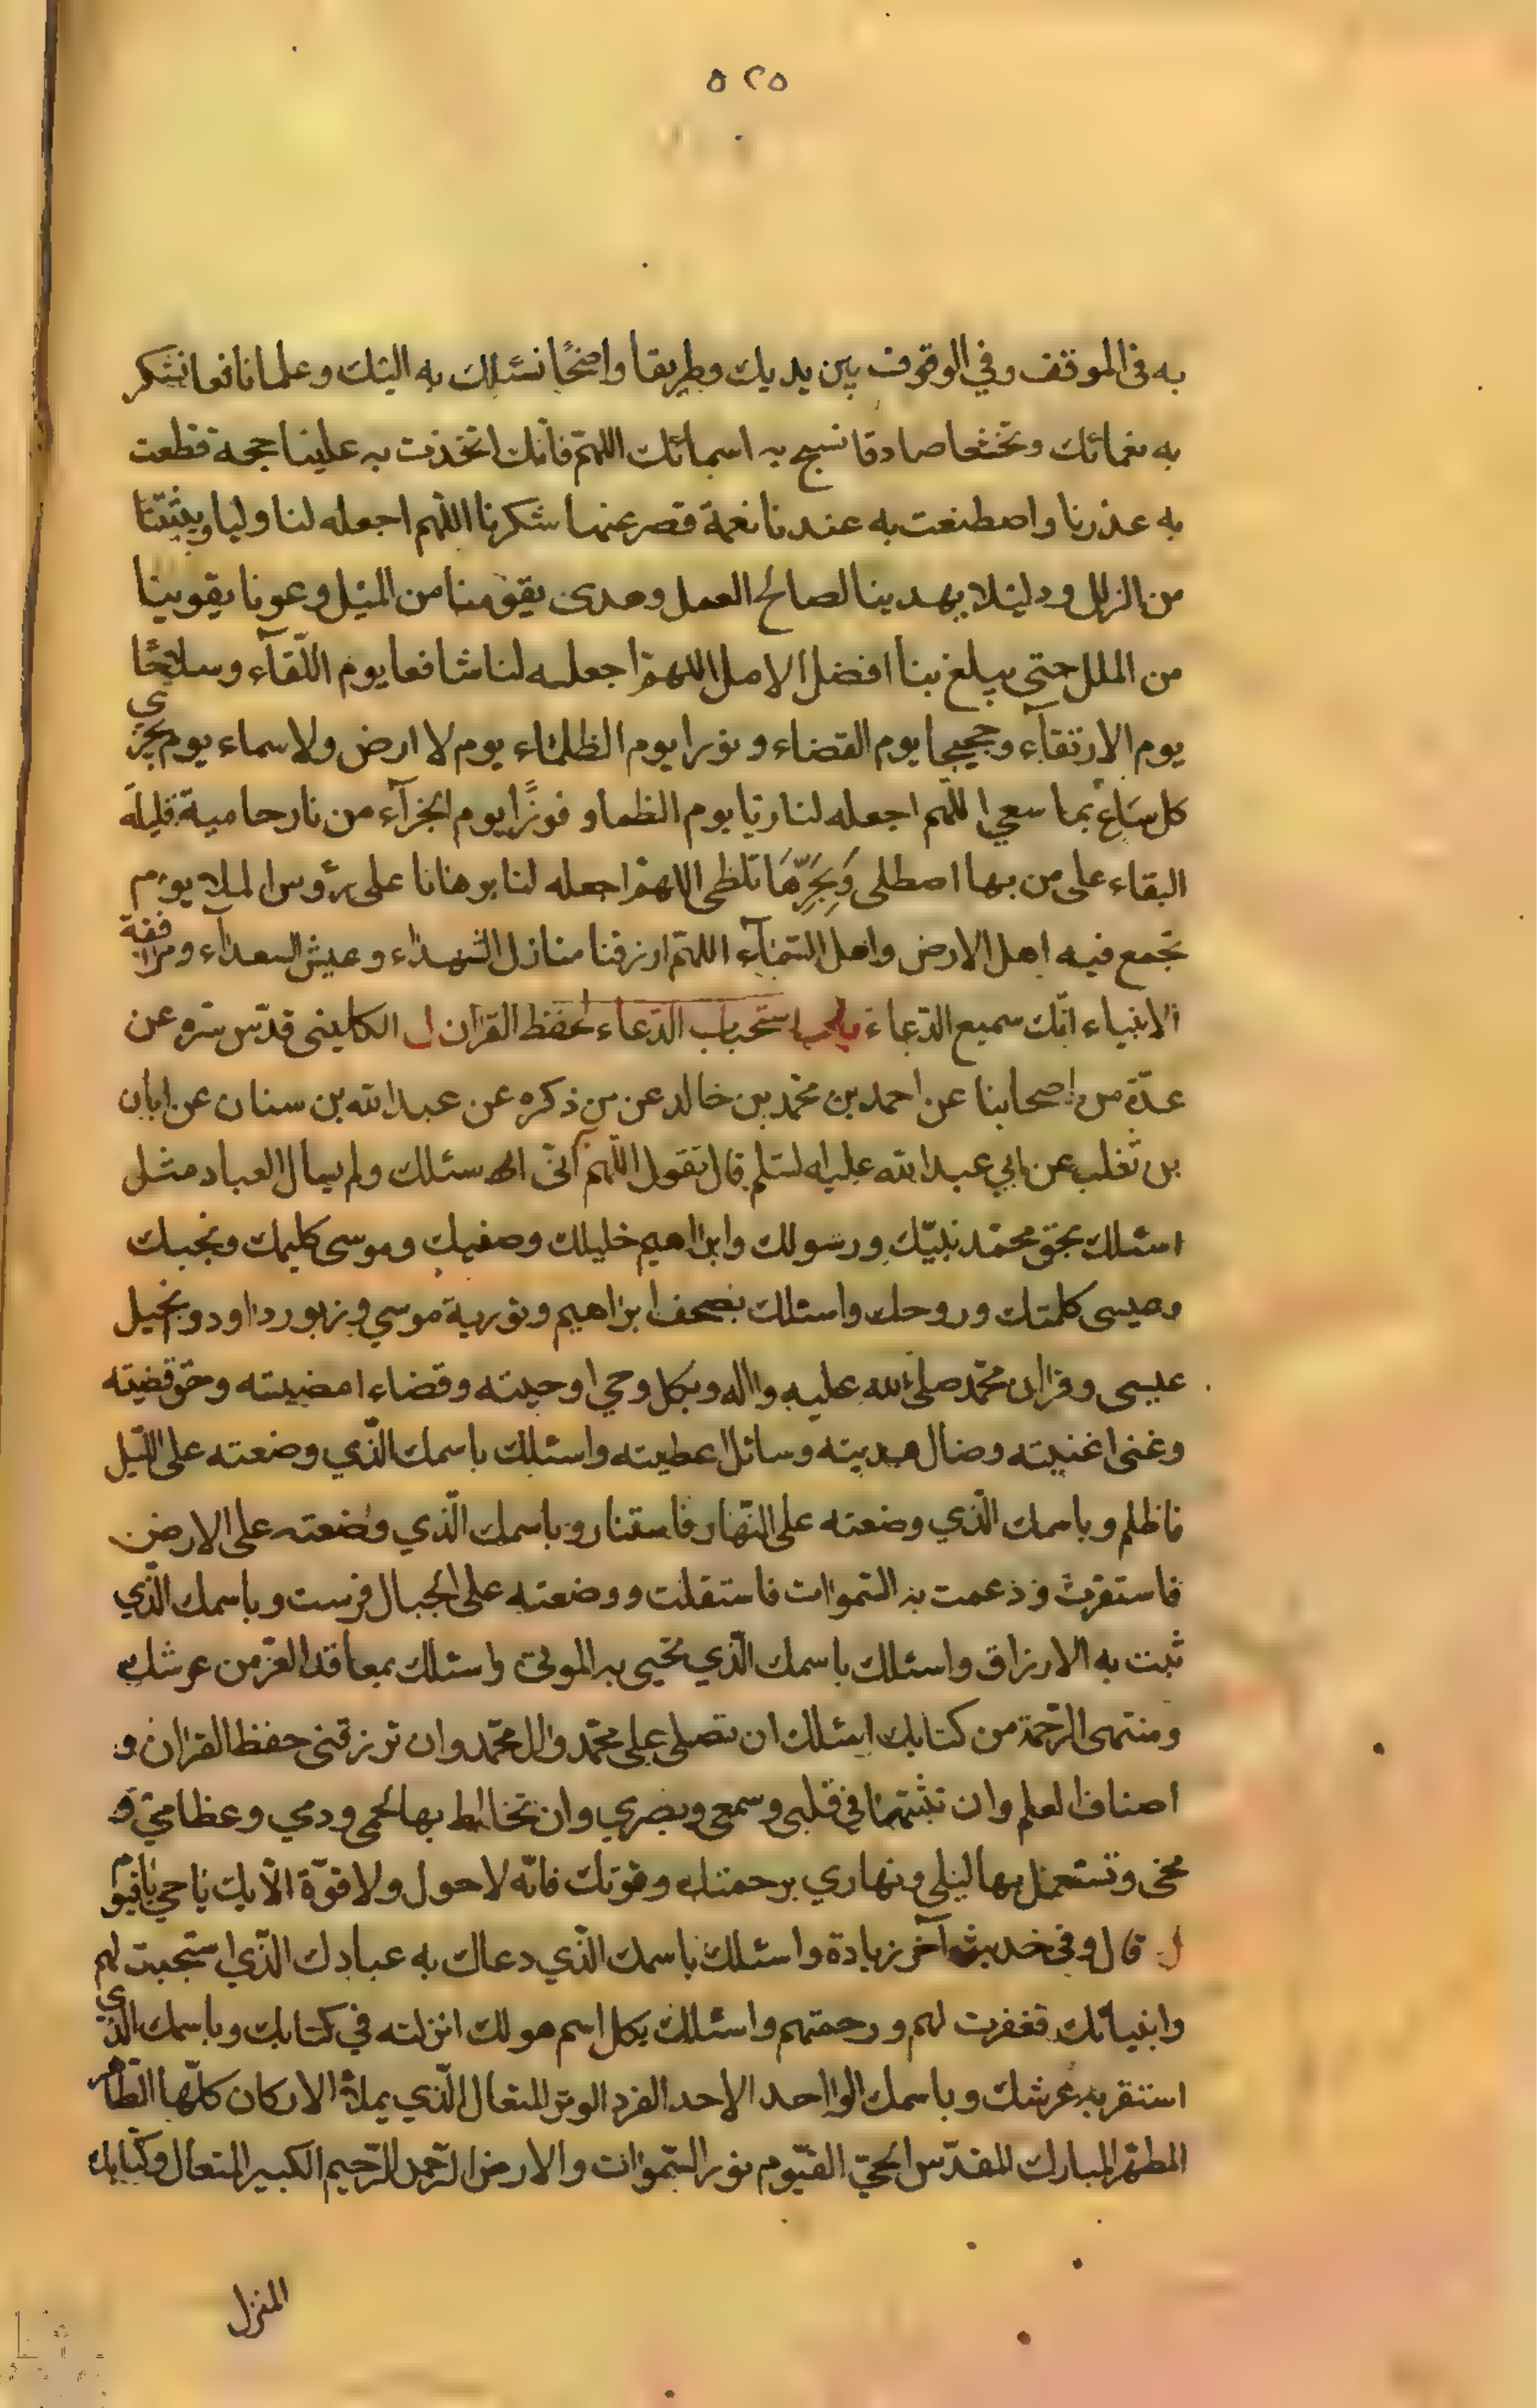 ٥٢٥
به فى الموقف وفي الوقوف بين يديك وطريقا واضحًا نسئلك به اليك وعلما نافعا نشكر
به نعمائك وتخشعا صادقا نسبح به اسمائك اللهّم فانّك اتخذت به علينا حجة قطعت
به عذرنا واصطنعت به عندنا نعمة قصر عنها شكرنا اللهم اجعله لنا وليا ويثبتنا
من الزلل ودليلا يهدينا لصالح العمل وهدى يقومنا من الميل وعونا يقوينا
من الملل حتى يبلغ بنا افضل الامل اللهم اجعله لنا شافعا يوم اللّقآء وسلاحًا
يوم الارتقآء وحجيجا يوم القضاء ونورا يوم الظلماء يوم لا ارض ولا سماء يوم يجزي
كل سَاعٍ بما سعي اللّهم اجعله لنا ريّا يوم الظما و فوزًا يوم الجزآء من نار حامية قليلة
البقاء على من بها اصطلى وَبِحَرِّهَا تلظى اللهم اجعله لنا برهانا على رؤوس الملا يوم
تجمع فيه اهل الارض واهل السّمآء اللهّم ارزقنا منازل الشهداء وعيش السعدآء ومرافقة
الانبياء انّك سميع الدّعاء باب استحباب الدّعاء لحفظ القران ل الكلينى قدّس سّره عن
عدّة من اصحابنا عن احمد بن محّمد بن خالد عن من ذكره عن عبدالله بن سنان عن ابان
بن تغلب عن ابي عبدالله عليه السّلم قال تقول اللّهم انّى اسئلك ولم يسال العباد مثلك
اسئلك بحق محمّد نبيّك ورسولك وابراهيم خليلك وصفيك وموسى كليمك ونجيك
وعيسى كلمتك وروحك واسئلك بصحف ابراهيم وتورية موسي وزبور داود وانجيل
عيسى وقران محّمد صلى الله عليه واله وبكل وحي اوحيته وقضاء امضيته وحق قضيته
وغنى اغنيته وضال هديته وسائل اعطيته واسئلك باسمك الّذي وضعته على اللّيل
فاظلم وباسمك الّذي وضعته على النّهار فاستنار وباسمك الّذي وضعته على الارض
فاستقرت ودعمت به السّموات فاستقلت ووضعته على الجبال فرست وباسمك الّذي
ثبت به الارزاق واسئلك باسمك الّذي تحيى به الموتى واسئلك بمعاقد العّز من عرشك
ومنتهى الرّحمة من كتابك اسئلك ان تصلى على محّمد وال محّمد وان ترزقنى حفظ القران و
اصناف العلم وان تثبّتها في قلبى وسمعى وبصري وان تخالط بها لحمى ودمي وعظامي و
مخى وتستعمل بها ليلى ونهاري برحمتك وقوتك فانّه لا حول ولا قوّة الّا بك يا حي يا قيوم
ل قال وفى حديث آخر زيادة واسئلك باسمك الّذي دعاك به عبادك الّذي استجبت لهم
وانبيائك فغفرت لهم ورحمتهم واسئلك بكل اسم هو لك انزلته في كتابك وباسمك الذي
استقر به عرشك وباسمك الواحد الاحد الفرد الوتر المتعال الّذي يملأ الاركان كلّها الطّاهر
المطهّر المبارك المقدّس الحيّ القيّوم نور السّموات والارض الرّحمن الرّحيم الكبير المتعال وكتابك
المنزل